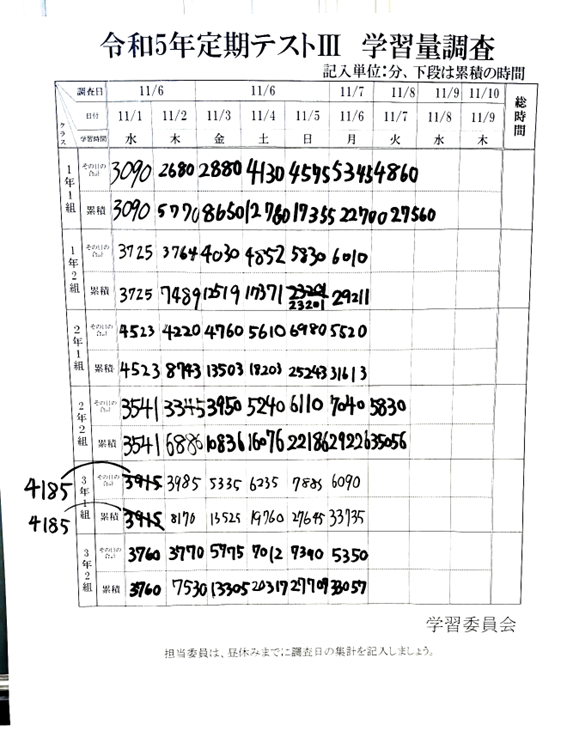 令和5年定期テストIII 学習量調査
記入単位:分、下段は累積の時間
調査日 11/6 11/6 11/7 11/8 11/9 11/10 総時間
日付 11/1 11/2 11/3 11/4 11/5 11/6 11/7 11/8 11/9
クラス 学習時間 水 木 金 土 日 月 火 水 木
1年1組 その日の合計 3090 2680 2880 4130 4595 5345 4860
累積 3090 5770 8650 12760 17355 22700 27560
1年2組 その日の合計 3725 3764 4030 4852 5830 6010
累積 3725 7489 12519 17371 23201 23201 29211
2年1組 その日の合計 4523 4220 4760 5610 6980 5520
累積 4523 8743 13503 18203 25243 31613
2年2組 その日の合計 3541 3345 3950 5240 6110 7040 5830
累積 3541 6886 10836 16076 22186 29226 35056
4185 3年1組 その日の合計 3915 3985 5335 6235 7885 6090
4185 累積 3915 8170 13525 19760 27645 33735
3年2組 その日の合計 3760 3770 5775 7012 7390 5350
累積 3760 7530 13305 20317 27707 33057
学習委員会
担当委員は、昼休みまでに調査日の集計を記入しましょう。